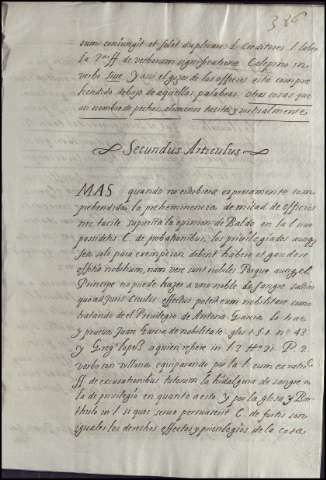 386
rum coniungit et solet duplicare l. Creditores l. sobre
la ff de verborum significatione Calepino in
verbo sive y así el gozo de los officios está compre
hendido debajo de aquellas palabras. otras cosas que
an nombre de pechos. alomenos tacita y virtualmente
Secundus Articulus
MAS quando no estobiera expresamente com
prehendida la preheminencia de mitad de officios
nec tacite supuesta la opinion de Baldo en la l. non
possidetis C. de probationibus, los privilegiados aunq
sea solo para exempcion, deben haber et gaudere
offitia nobilium, nam vere sunt nobiles Porque aunq el
Principe no puede hazer a uno noble de sangre saltim
quoad juris Ciuiles effectus potest eum nobilitare como
tratando de el Privilegio de Antona Garcia lo trae
y prueva Joan Garcia de nobilitate glos. 1 § 1. nº 43
y Gregº lopez a quien refiere in l. 7 tt. 21. P. 2
verbo con villana equiparando por la l.
ff. de excusationibus tutorum la hidalguia de sangre a
la de privilegio en quanto a esto y por la glosa y Bar
thulo in l. si quis servo C. de furtis son
iguales los derechos effectos y privilegios de la cosa